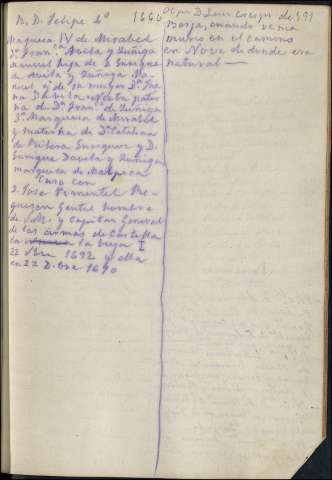 R. D. Felipe 4º 1660
Marquesa IV de Mirabel
Dª. Franª. Avila y Zúñiga
Manuel hija de D. Enrique
de Avila y Zúñiga Ma-
nuel y de su mujer Dª. Jua-
na Davila nieta pater
na de Dª. Franª. de Zúñiga
3ª. Marquesa de Mirabel
y materna de Dª Catalina
de Ribera Enriquez y D.
Enrique Davila y Zúñiga
marqueses de Malpica
Caso con
D. Jose Pimentel Me-
gentil hombre
de S. M. y Capitan General
de las armas de Castilla
la la vieja I
1692 y ella
en 22 D. bre 1690
Obpo D. Luis Crespi de 591
Borja, cuando venia
murio en el camino
en Noves de donde era
natural —